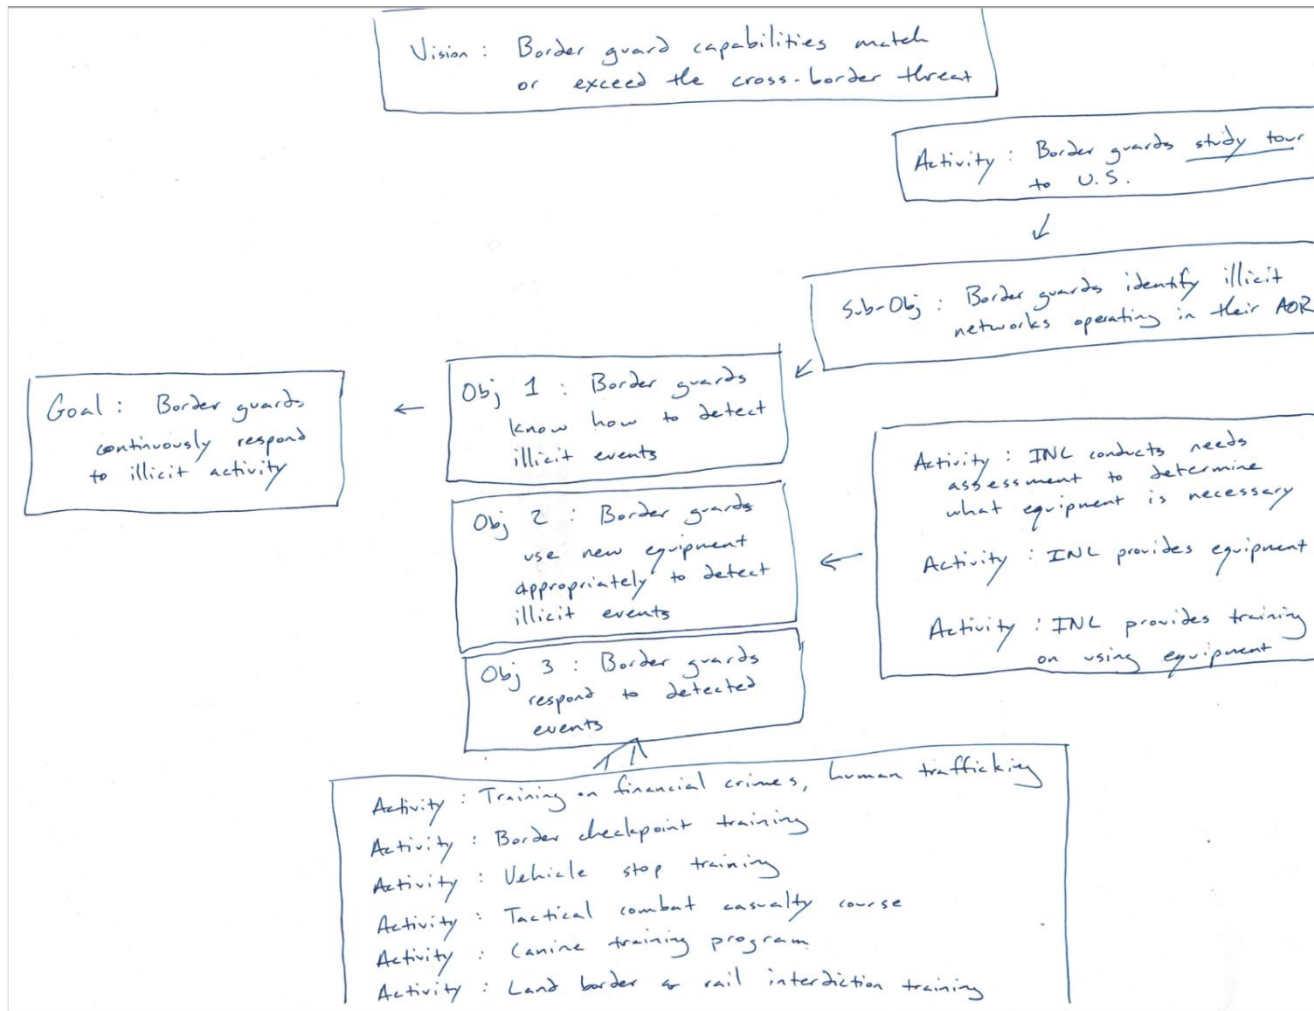 Vision : Border guard capabilities match
or exceed the cross-border threat
Activity : Border guards study tour
to U.S.
Sub-Obj : Border guards identify illicit
networks operating in their AOR
Goal : Border guards
continuously respond
to illicit activity
Obj 1 : Border guards
know how to detect
illicit events
Obj 2 : Border guards
use new equipment
appropriately to detect
illicit events
Obj 3 : Border guards
respond to detected
events
Activity : INL conducts needs
assessment to determine
what equipment is necessary
Activity : INL provides equipment
Activity : INL provides training
on using equipment
Activity : Training on financial crimes, human trafficking
Activity : Border checkpoint training
Activity : Vehicle stop training
Activity : Tactical combat casualty course
Activity : Canine training program
Activity : Land border & rail interdiction training